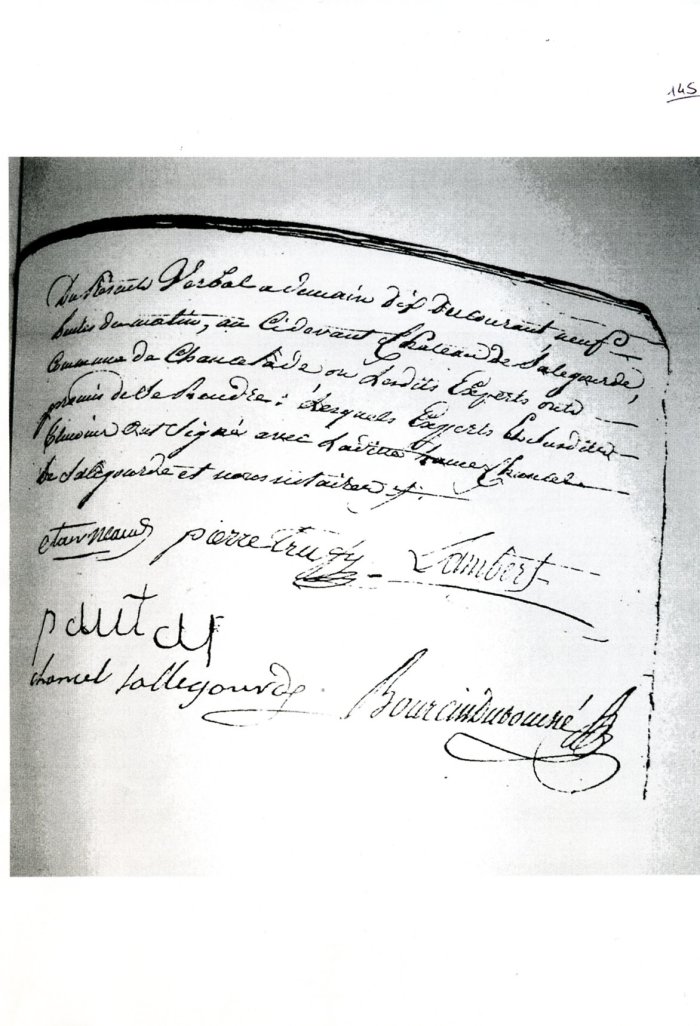 145
Du Présent Verbal a demain dix Du courant neuf
heures du matin, au Cidevant Château de Salegourde,
Commune de Chancelade ou Lesdits Experts ont
promis de Se Rendre; Lesquels Experts
ont Signé avec Laditte Dame Chancel
de Salegourde et nous notaires
pierre trufy Lambert
pautaf
chancel sallegourde